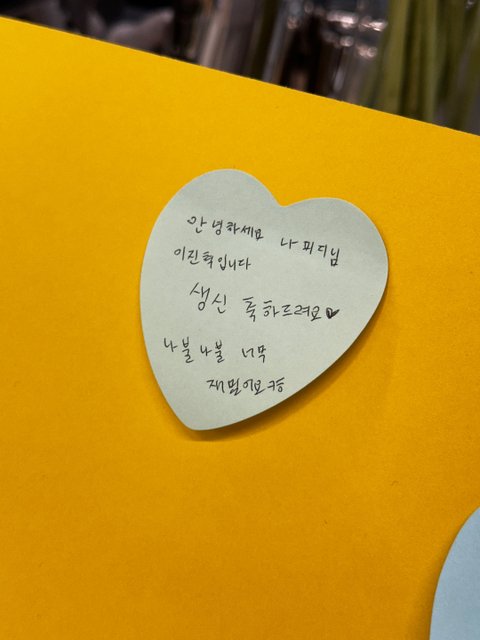 안녕하세요 나피디님
이진혁입니다
생신 축하드려요♥
나불나불 너무
재밌어요ㅎㅎ